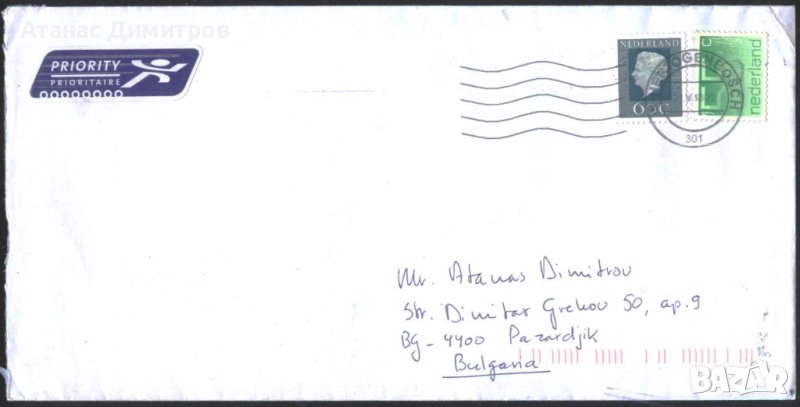 Атанас Димитров
PRIORITY
PRIORITAIRE
NEDERLAND
65C
C
nederland
301
Mr. Atanas Dimitrov
Str. Dimitar Grekov 50, ap.9
BG-4400 Pazardjik
Bulgaria
BAZAR